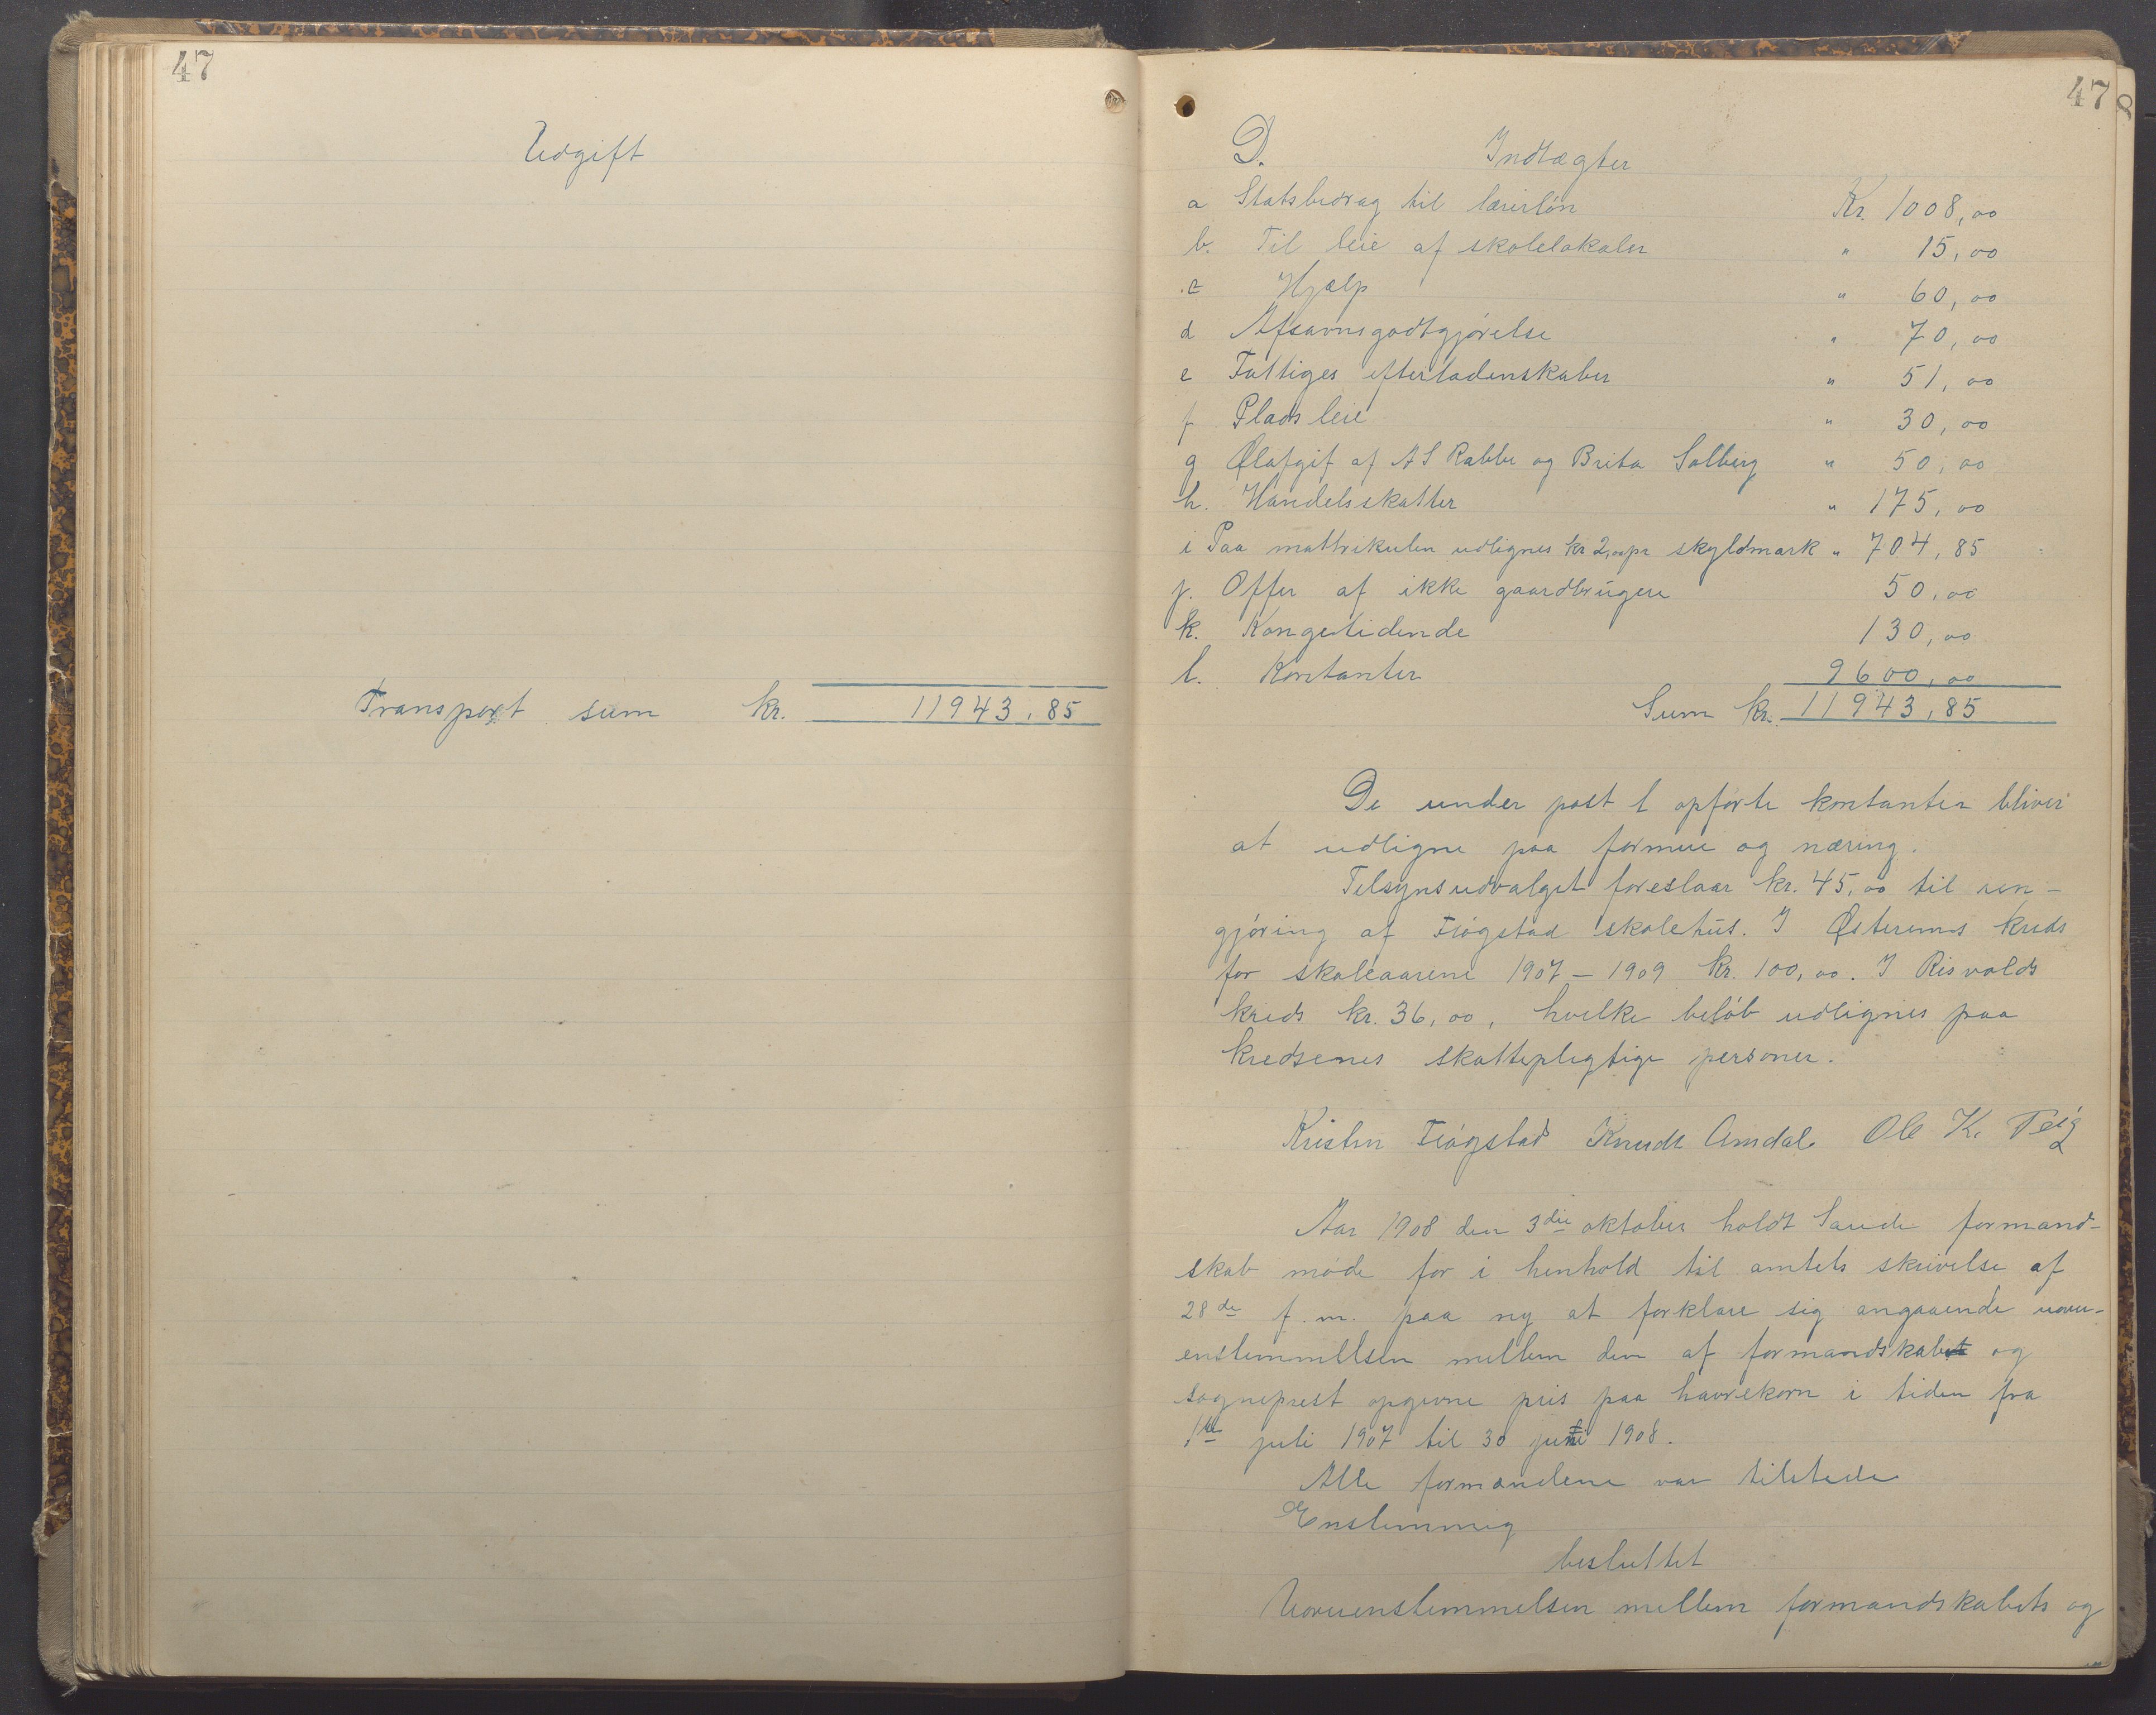 47
Udgift
Transport sum kr. 11943,85
47
8
D. Indtægter
a Statsbidrag til lærerløn Kr. 1008,00
b. Til leie af skolelokaler " 15,00
c Hjælp " 60,00
d Afsavnsgodtgjørelse " 70,00
e Fattiges efterladenskaber " 51,00
f Plads leie " 30,00
g Ølafgif af A S Rabbe og Brita Solberg " 50,00
h. Handelsskatter " 175,00
i Paa mattrikulen udlignes kr 2,00 pr skyldmark " 704,85
j. Offer af ikke gaardbrugere 50,00
k. Kongetidende 130,00
l. Kontanter 9600,00
Sum kr. 11943,85
De under post l opførte kontanter bliver
at udligne paa formue og næring.
Tilsynsudvalget foreslaar kr. 45,00 til ren-
gjøring af Fiøgstad skolehus. I Østerems kreds
for skoleaarene 1907 - 1909 kr. 100,00. I Risvolds
kreds kr. 36,00, hvilke beløb udlignes paa
kredsenes skattepligtige personer.
Kristen Fiøgstad Knudt Amdal Ole K. Teig
Aar 1908 den 3die oktober holdt Saude formand-
skab møde for i henhold til amtets skrivelse af
28de f. m. paa ny at forklare sig angaaende uover-
enstemmelsen mellem den af formandskabet og
sogneprest opgivne pris paa havrekorn i tiden fra
1ste juli 1907 til 30 juni 1908.
Alle formændene var tilstede
Enstemmig
besluttet
Uoverenstemmelsen mellem formandskabets og